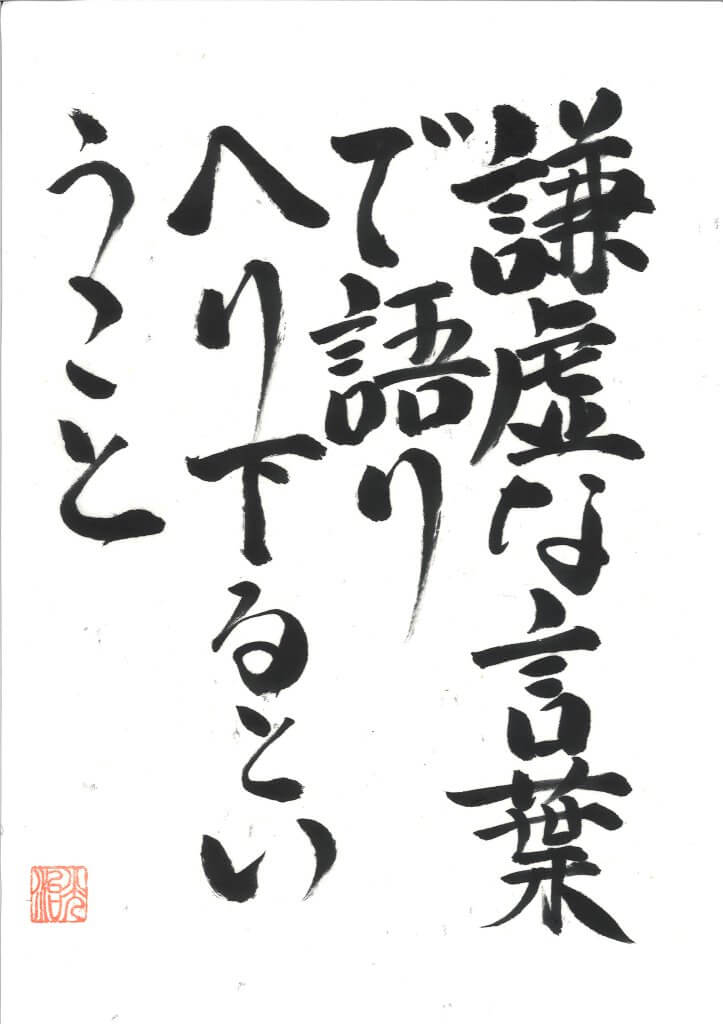 謙虚な言葉
で語り
へり下るとい
うこと